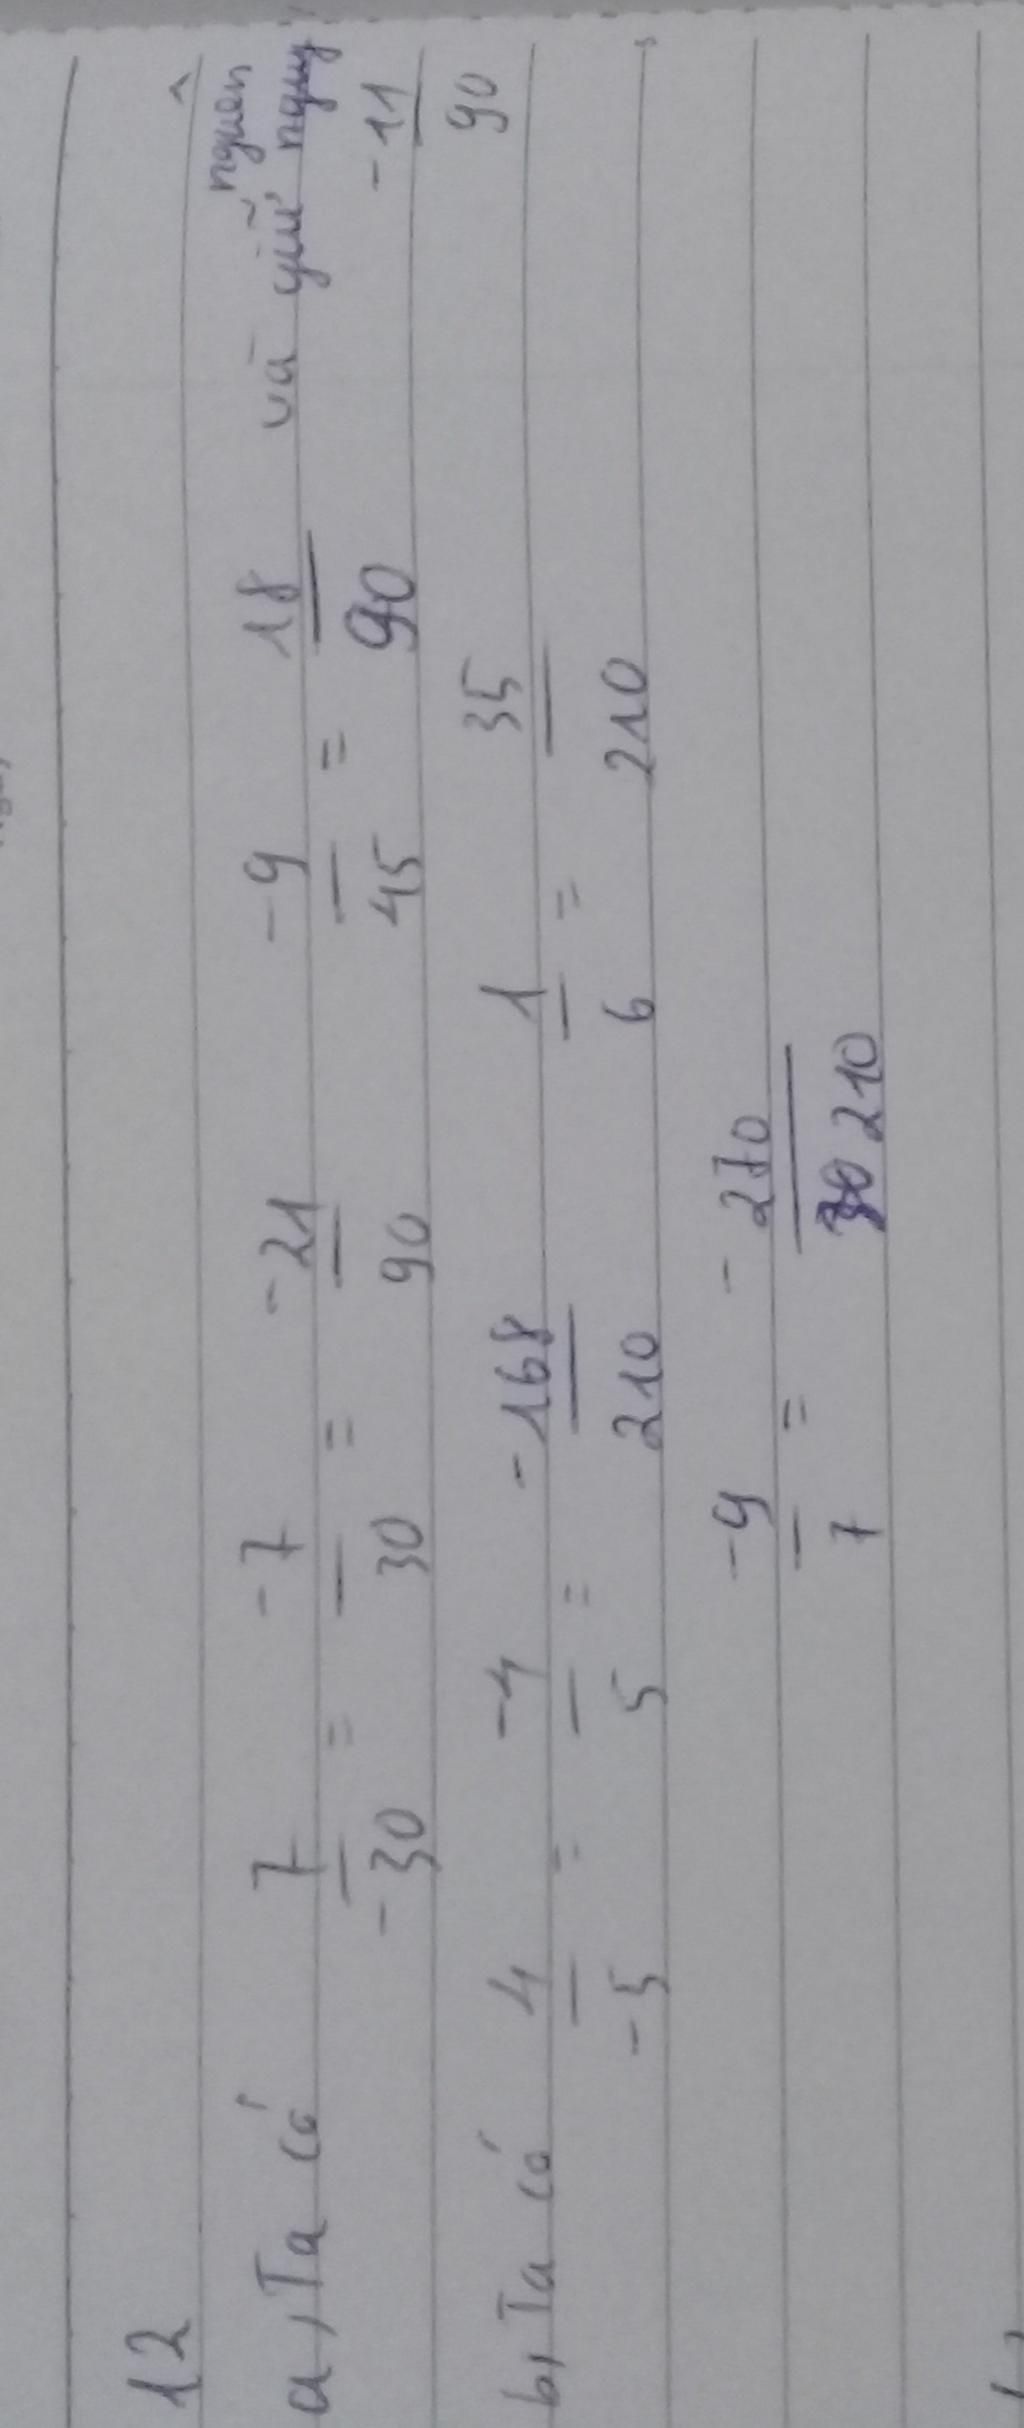 12
a, Ta có 7/-30 = -7/30 = -21/90 -9/45 = 18/90 và giữ nguyên -11/90
b, Ta có 4/-5 = -4/5 = -168/210 1/6 = 35/210
-9/7 = -270/210